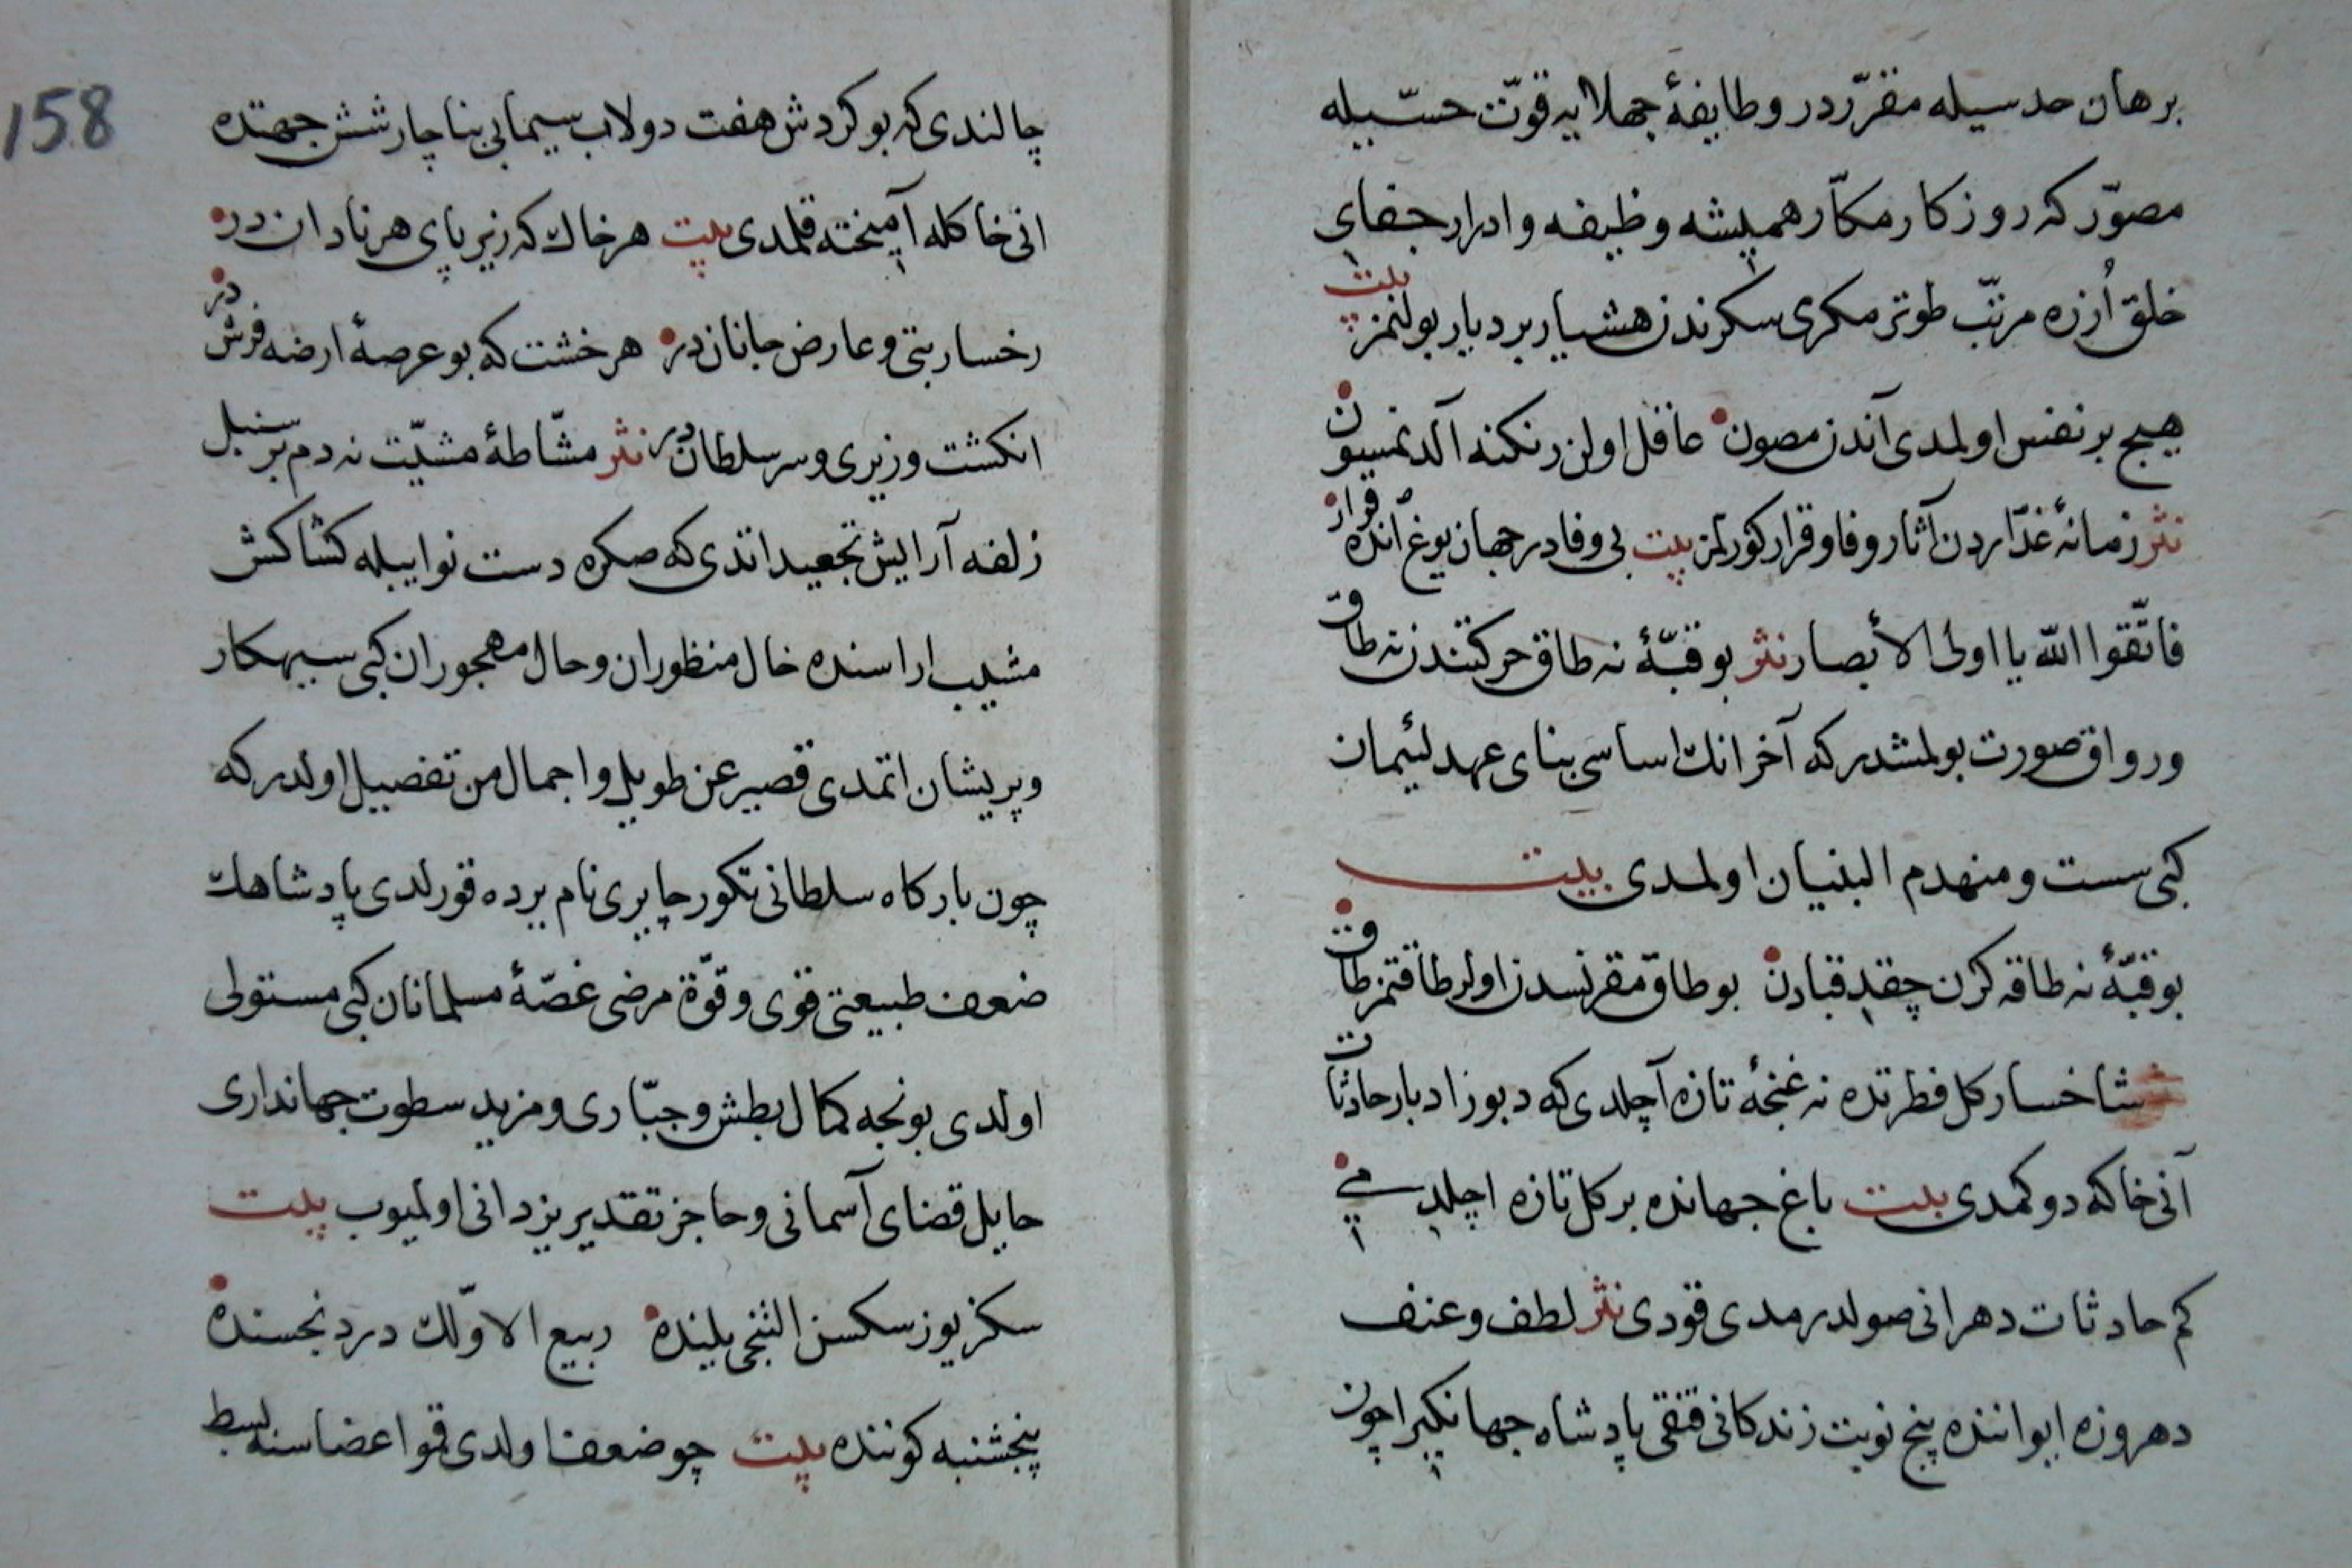 برهان حدسیله مقرّر در و طایفهٔ جهلایه قوّت حسّیله
مصوّر که روزکار مکّار همیشه وظیفه و ادرار جفای
خلق اُزره مرتّب طوتر مکری سکرندن هشیار بر دیار بولنمز بیت
هیچ بر نفس اولمدی آندن مصون عاقل اولن رنکنه آلدنمسون
نثر زمانهٔ غدّاردن آثار وفا و قرار کورلمز بیت بی وفادر جهان یوغ آنده قرار
فاتّقوا الله یا اولی الأبصار نثر بو قبّهٔ نه طاق حرکتندن نه طاق
و رواق صورت بولمشدر که آخر انك اساسی بنای عهد لئیمان
کبی سست و منهدم البنیان اولمدی بیت
بو قبّهٔ نه طاقه کرن چقدی قبادن بو طاق مقرنسدن اولر طاقتمز طاق
شاخسار کل فطرتده نه غنچهٔ تازه آچلدی که دبور ادبار حادثات
آنی خاکه دوکمدی بیت باغ جهانده بر کل تازه اچلدی می
کم حادثات دهر انی صولدرمدی قودی نثر لطف و عنف
دهر وزه ایواننده پنج نوبت زندکانی قنقی پادشاه جهانکیر اچون
158
چالندی که بو کردش هفت دولاب سیمابی بناچار شش جهتده
انی خاکله آمیخته قلمدی بیت هر خاك که زیر پای هر نادان در
رخسار بتی و عارض جانان در هر خشت که بو عرصهٔ ارضه فرش در
انکشت وزیری و سر سلطان در نثر مشّاطهٔ مشیّت نه دم بر سنبل
زلفه آرایش تجعید اتدی که صکره دست نوایبله کشاکش
مشیب اراسنده خال منظوران و حال مهجوران کبی سیهکار
و پریشان اتمدی قصیر عن طویل و اجمال من تفصیل اولدر که
چون بارکاه سلطانی تکور چایری نام یرده قورلدی پادشاهك
ضعف طبیعتی قوی و قوّة مرضی غصّهٔ مسلمانان کبی مستولی
اولدی بونجه کمال بطش و جبّاری و مزید سطوت جهانداری
حایل قضای آسمانی و حاجز تقدیر یزدانی اولمیوب بیت
سکز یوز سکسن التنجی یلینده ربیع الاوّلك دردنجسنده
پنجشنبه کوننده بیت چو ضعف اولدی قمو اعضاسنه بسط